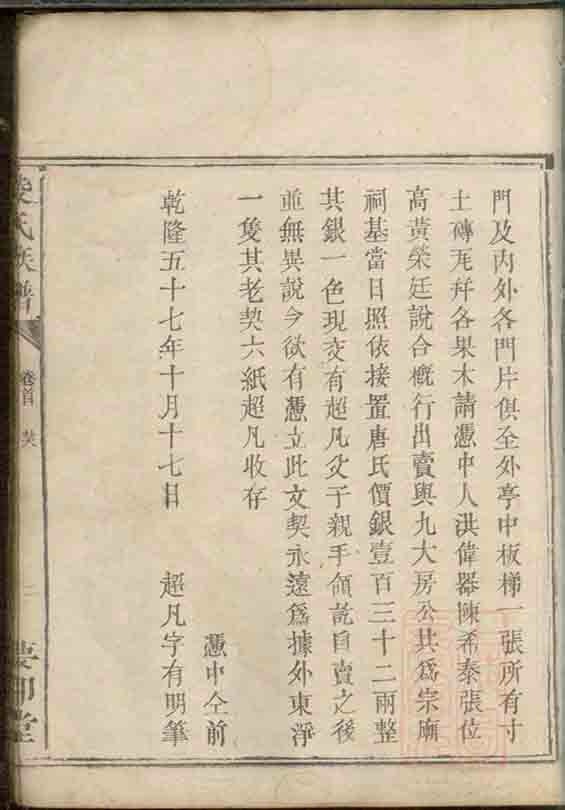 門及內外各門片俱全外亭中板梯一張所有寸
土磚瓦并各果木請憑中人洪偉器陳希泰張位
高黃榮廷說合概行出賣與九大房公共為宗廟
祠基當日照依接置唐氏價銀壹百三十二兩整
其銀一色現交有超凡父子親手領訖自賣之後
並無異說今欲有憑立此文契永遠為據外東淨
一隻其老契六紙超凡收存
憑中仝前
乾隆五十七年十月十七日 超凡字有明筆
氏族譜
卷首 契